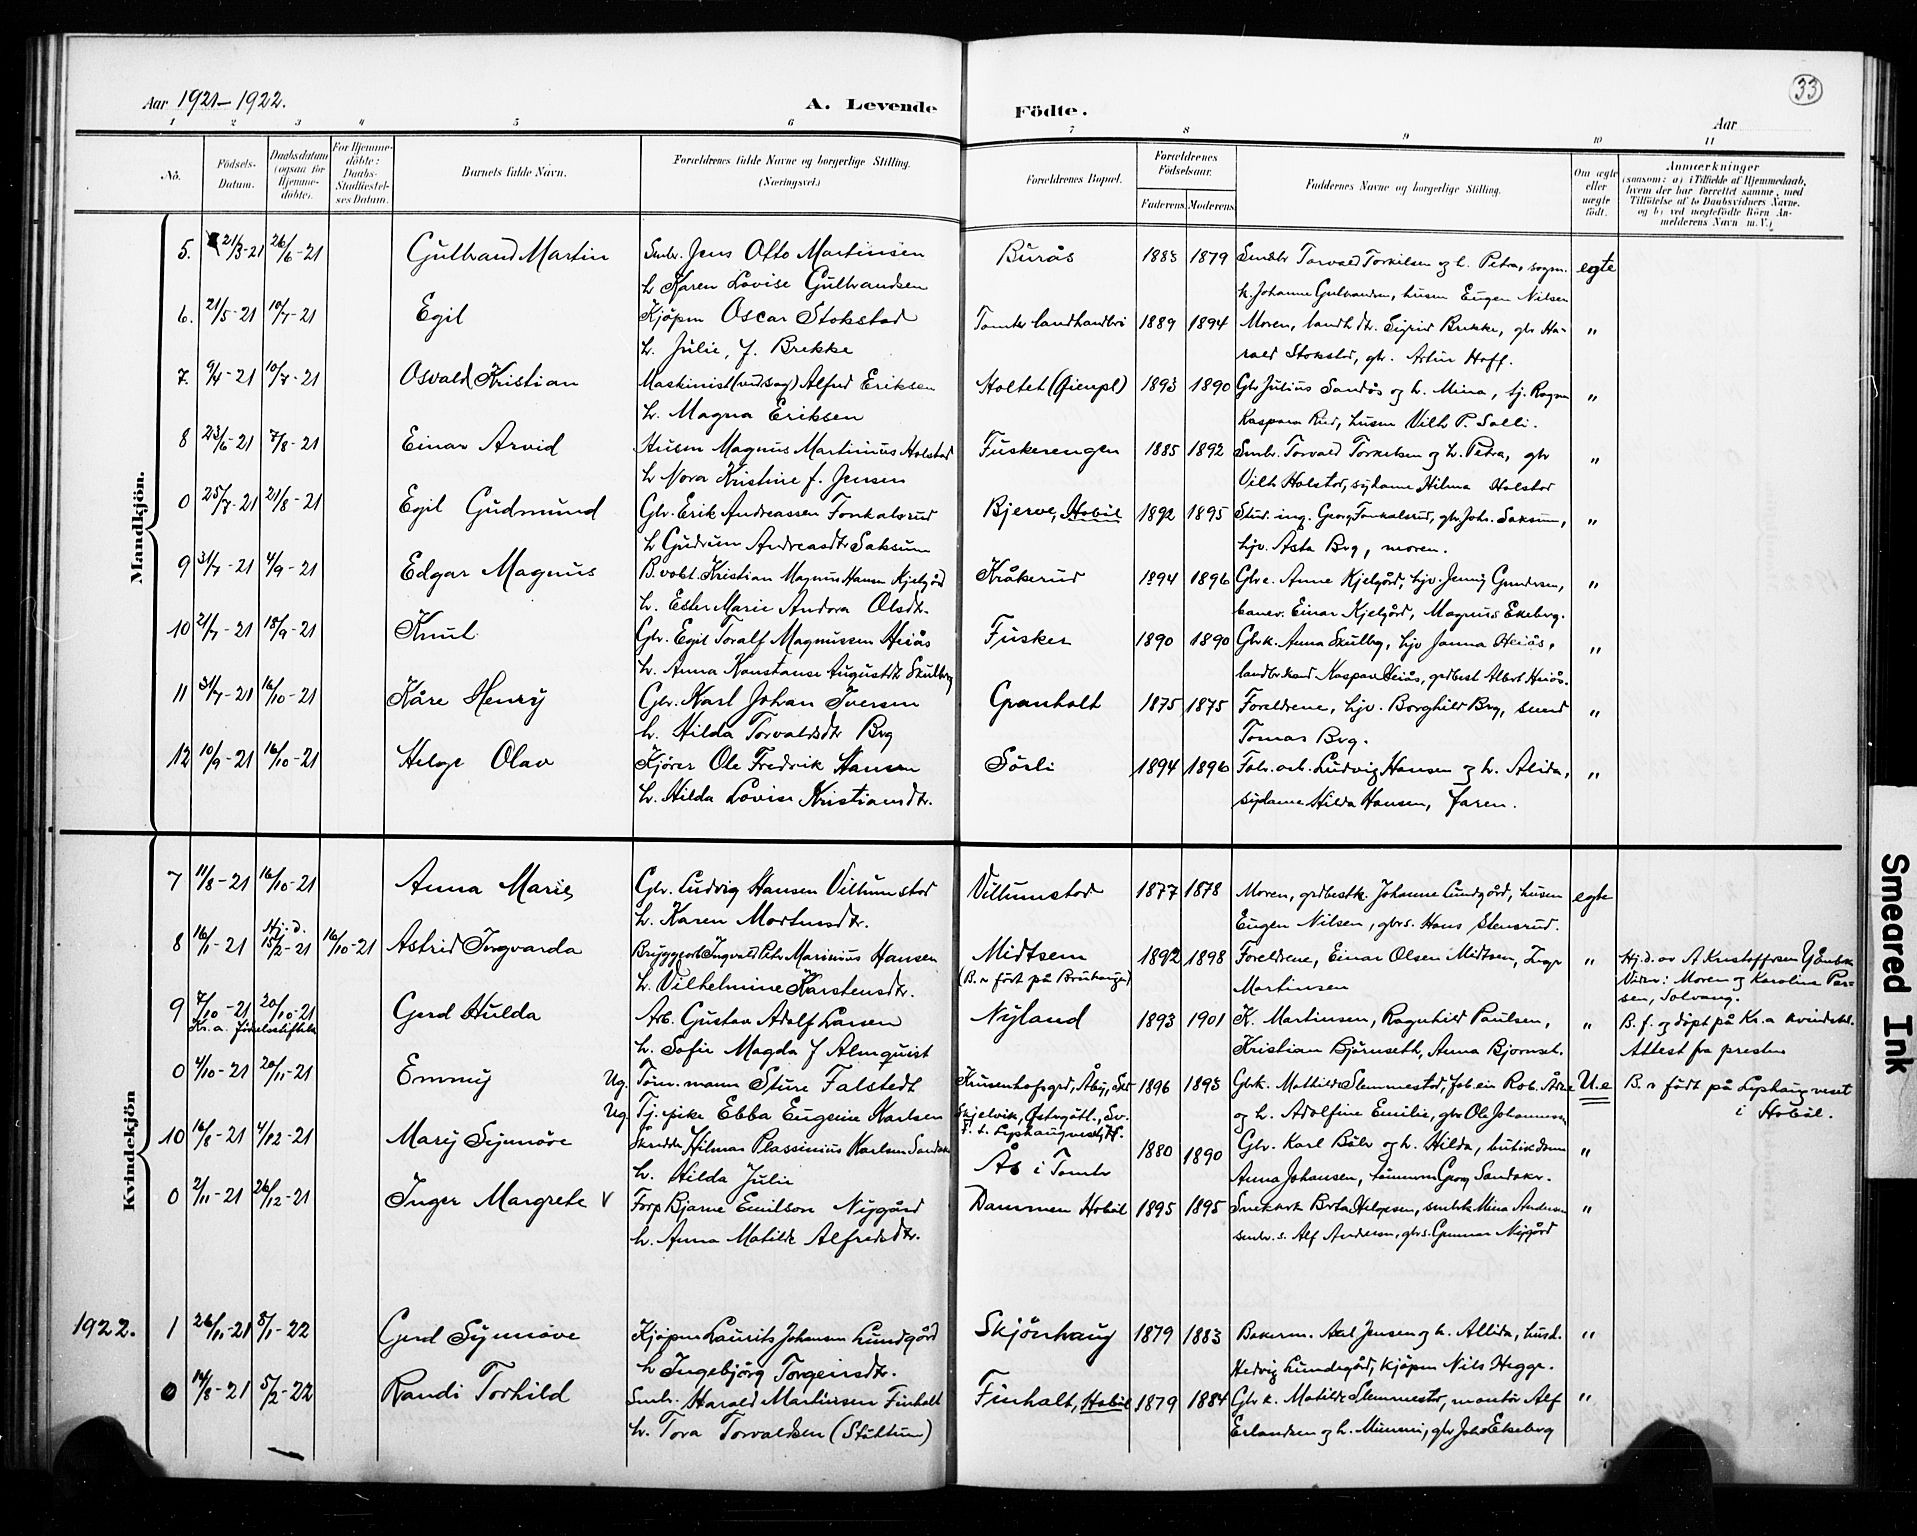 Aar 1921–1922.
A. Levende Födte.
33
Aar
1 2 3 4 5 6 7 8 9 10 11
No. Födsels-Datum. Daabsdatum (ogsaa för Hjemmedöbte). For Hjemmedöbte: Daabs-Stadfæstelses Datum. Barnets fulde Navn. Forældrenes fulde Navne og borgerlige Stilling. (Næringsvei.) Forældrenes Bopæl. Forældrenes Födselsaar. Faderens. Moderens. Faddernes Navne og borgerlige Stilling. Om ægte eller uægte födt. Anmærkninger (saasom: a) i Tilfælde af Hjemmedaab, hvem der har forrettet samme, med Tilföielse af to Daabsvidners Navne, og b) ved uægtefödte Börn Anmelderens Navn m. V.)
Mandkjön.
5. 21/3-21 26/6-21 Gulbrand Martin Smbr. Jens Otto Martinsen Burås 1883 1879 Smbr Torvald Torkilsen og h. Petra, sogn. egte
h. Karen Lovise Gulbrandsen k. Johanne Gulbrandsen, husm Eugen Nilsen
6. 21/5-21 10/7-21 Egil Kjøpm Oscar Stokstad Tomter landhandleri 1889 1894 Moren, landh. dtr. Sigrid Brekke, gbr Ha- "
h. Julie, f. Brekke rald Stokstad, gbr. Artur Hoff.
7. 9/4-21 10/7-21 Osvald Kristian Maskinist (ved sag) Alfred Eriksen Holtet (Gienpl) 1893 1890 Gbr Julius Sandås og h. Mina, tj. Ragna "
h. Magna Eriksen Kaspara Rud, husm Vilh P. Solli.
8 23/6-21 7/8-21 Einar Arvid Husm Magnus Martinius Holstad Fuskerengen 1885 1892 Smbr. Torvald Torkelsen og h. Petra, gbr "
h Nora Kristine f. Jensen Vilh Holstad, sydame Hilma Holstad
0 25/7-21 21/8-21 Egil Gudmund Gbr. Erik Andreassen Fonkalsrud Bjerve, Hobøl 1892 1895 Stud. ing. Georg Fonkalsrud, gbr Joh. Saksum, "
h Gudrun Andreasdtr Saksum hjv. Asta Brg, moren.
9 31/7-21 4/9-21 Edgar Magnus B.vokt. Kristian Magnus Hansen Kjelgård Kråkerud 1894 1896 Gbre. Anne Kjelgård, hjv. Jenny Gundersen, "
h. Ester Marie Andora Olsdtr. banev. Einar Kjelgård, Magnus Ekeberg.
10 21/7-21 18/9-21 Knut Gbr. Egil Toralf Magnussen Heiås Fusker 1890 1890 Gbrk. Anna Skulbrg, hjv Janna Heiås, "
h. Anna Konstanse Augustdtr Skulbrg landbr.kand Kaspar Heiås, grdbest Albert Heiås.
11 31/7-21 16/10-21 Kåre Henry Gbr. Karl Johan Iversen Granholt 1875 1875 Foreldrene, hjv. Borghild Brg, smed "
h. Hilda Torvaldsdtr Brg Tomas Brg.
12 10/9-21 16/10-21 Helge Olav Kjører Ole Fredrik Hansen Sørli 1894 1896 Fab.arb. Ludvig Hansen og h. Alida, "
h. Hilda Lovise Kristiansdtr. sydame Hilda Hansen, faren.
Kvindekjön
7 11/8-21 16/10-21 Anna Marie Gbr. Ludvig Hansen Villumstad Villumstad 1877 1878 Moren, grdbestk. Johanne Lundgård, husm egte
h. Karen Mortensdtr. Eugen Nilsen, gbrs. Hans Stensrud.
8 16/1-21 Hj.d. 15/2-21 16/10-21 Astrid Ingvarda Bryggearb Ingvald Petr Marinius Hansen Midtsem 1892 1898 Foreldrene, Einar Olsen Midtsem, Inga " Hj.d. av A Kristoffersen
h. Vilhelmine Karstensdtr. (B. er født på Bruhaugen) Martinsen Vidn: Moren og Karoline Pas-
sen, Solvang.
9 7/10-21 20/10-21 Gerd Hulda Arb. Gustav Adolf Larsen Nyland 1893 1901 K. Martinsen, Ragnhild Paulsen, " B. f. og døpt på Kr.a kvindekl.
Kr.a. fødselsstiftelse h. Sofie Magda f Almquist Kristian Bjørnseth, Anna Bjørnset. Attest fra presten
0 4/10-21 20/11-21 Emmy Ug. Tøm.mann Sture Falstedt Krusenhofsgrd, Åby, 1896 1893 Gbrk. Mathilde Slemmestad, U.e B. er født på Lyshaug vest
Ug Tj.pike Ebba Eugenie Karlsen Skjelvik, Østergøtl., Sv. og h. Adolfine Emilie, gbr Ole Johannessen i Hobøl.
F. t. Lyshaug vest, H.
10 16/8-21 4/12-21 Mary Synnøve Skrædder Hilmar Plassinius Karlsen Sandaker Ås i Tomter 1880 1890 Gbr. Karl Båhr og h. Hilda, butikdame "
h. Hilda Julie Anna Johansen, tømmerm Georg Sandaker.
0 2/11-21 26/12-21 Inger Margrete V Forp Bjarne Emilson Nygård Dammen Hobøl 1895 1895 Snekkerk Berta Helgesen, smbrk Mina Andersen "
h. Anna Matilde Alfredsdtr. smbr. s. Alf Andersen, gbrs. Gunnar Nygård
1922. 1 26/11-21 8/1-22 Gerd Synnøve Kjøpm Laurits Johansen Lundgård Skjønhaug 1879 1883 Bakerm. Axel Jensen og h. Allida, husd. "
h Ingebjørg Torgeirsdtr. Hedvig Lundegård, kjøpm Nils Hegge.
0 14/8-21 5/2-22 Randi Torhild Smbr. Harald Martinsen Finholt Finholt, Hobøl 1879 1884 Gbr k. Matilde Slemmestad, montør Alf "
h. Tora Torvaldsen (Støttum) Erlandsen og h. Mimmi, gbr Joh Ekeberg
Smeared Ink